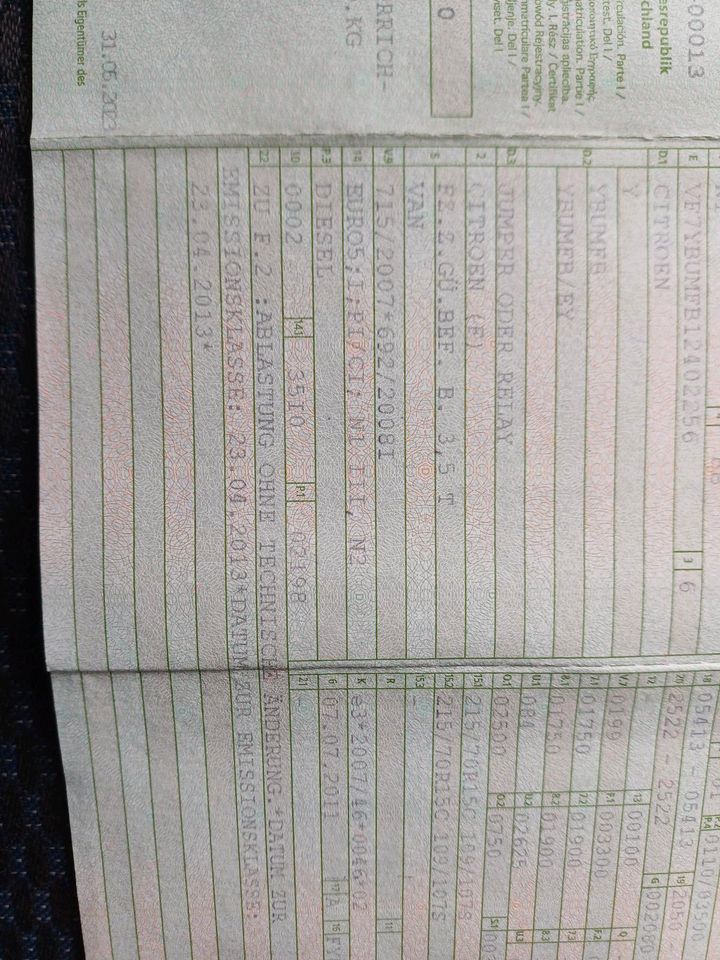 -00013
esrepublik
chland
rculación. Parte I /
test. Del I /
matriculation. Partie I /
y. I. Rész / Certifikat
0
RRICH-
.KG
31.05.2023
ls Eigentümer des
E VF7YBUMFB12402256 3 6
D.1 CITROEN
Y
D.2 YBUMFB
YBUMFB/EY
D.3 JUMPER ODER RELAY
2 CITROEN (F)
5 FZ.Z.GÜ.BEF. B. 3,5 T
VAN
V.9 715/2007*692/2008I
14 EURO5;I;PI/CI; N1 III, N2
P.3 DIESEL
10 0002 14.1 35I0 P.1 02198
22 ZU F.2 :ABLASTUNG OHNE TECHNISCHE ÄNDERUNG.*DATUM ZUR
EMISSIONSKLASSE: 23.04.2013*DATUM ZUR EMISSIONSKLASSE:
23.04.2013*
P.4 0110/03500
18 05413 - 05413 19 2050 -
20 2522 - 2522 G 002080
12 - 13 00100 Q
V.7 0199 F.1 003300 F.2
7.1 01750 7.2 01900 7.3
8.1 01750 8.2 01900 8.3
U.1 084 U.2 02625 U.3
O.1 02500 O.2 0750 S.1 003
15.1 215/70R15C 109/107S
15.2 215/70R15C 109/107S
15.3 -
R 11
K e3*2007/46*0046*02
6 07.07.2011 17 A 16 FY
21 -